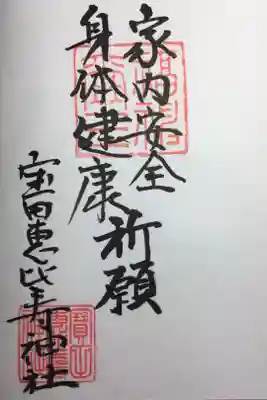 家内安全
身体健康祈願
宝田恵比寿神社